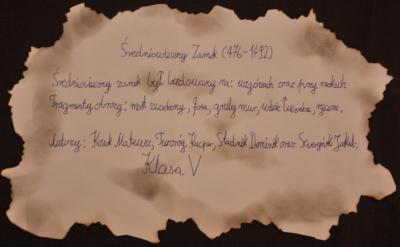 Średniowieczny Zamek (476-1492)
Średniowieczny zamek był budowany na: wzgórzach oraz przy rzekach
Fragmenty obrony: most zwodzony, fosa, gruby mur, wieże rycerze.
Autorzy: Kozak Mateusz, Kacper, Śladnik Dominik oraz Jakub.
Klasa V